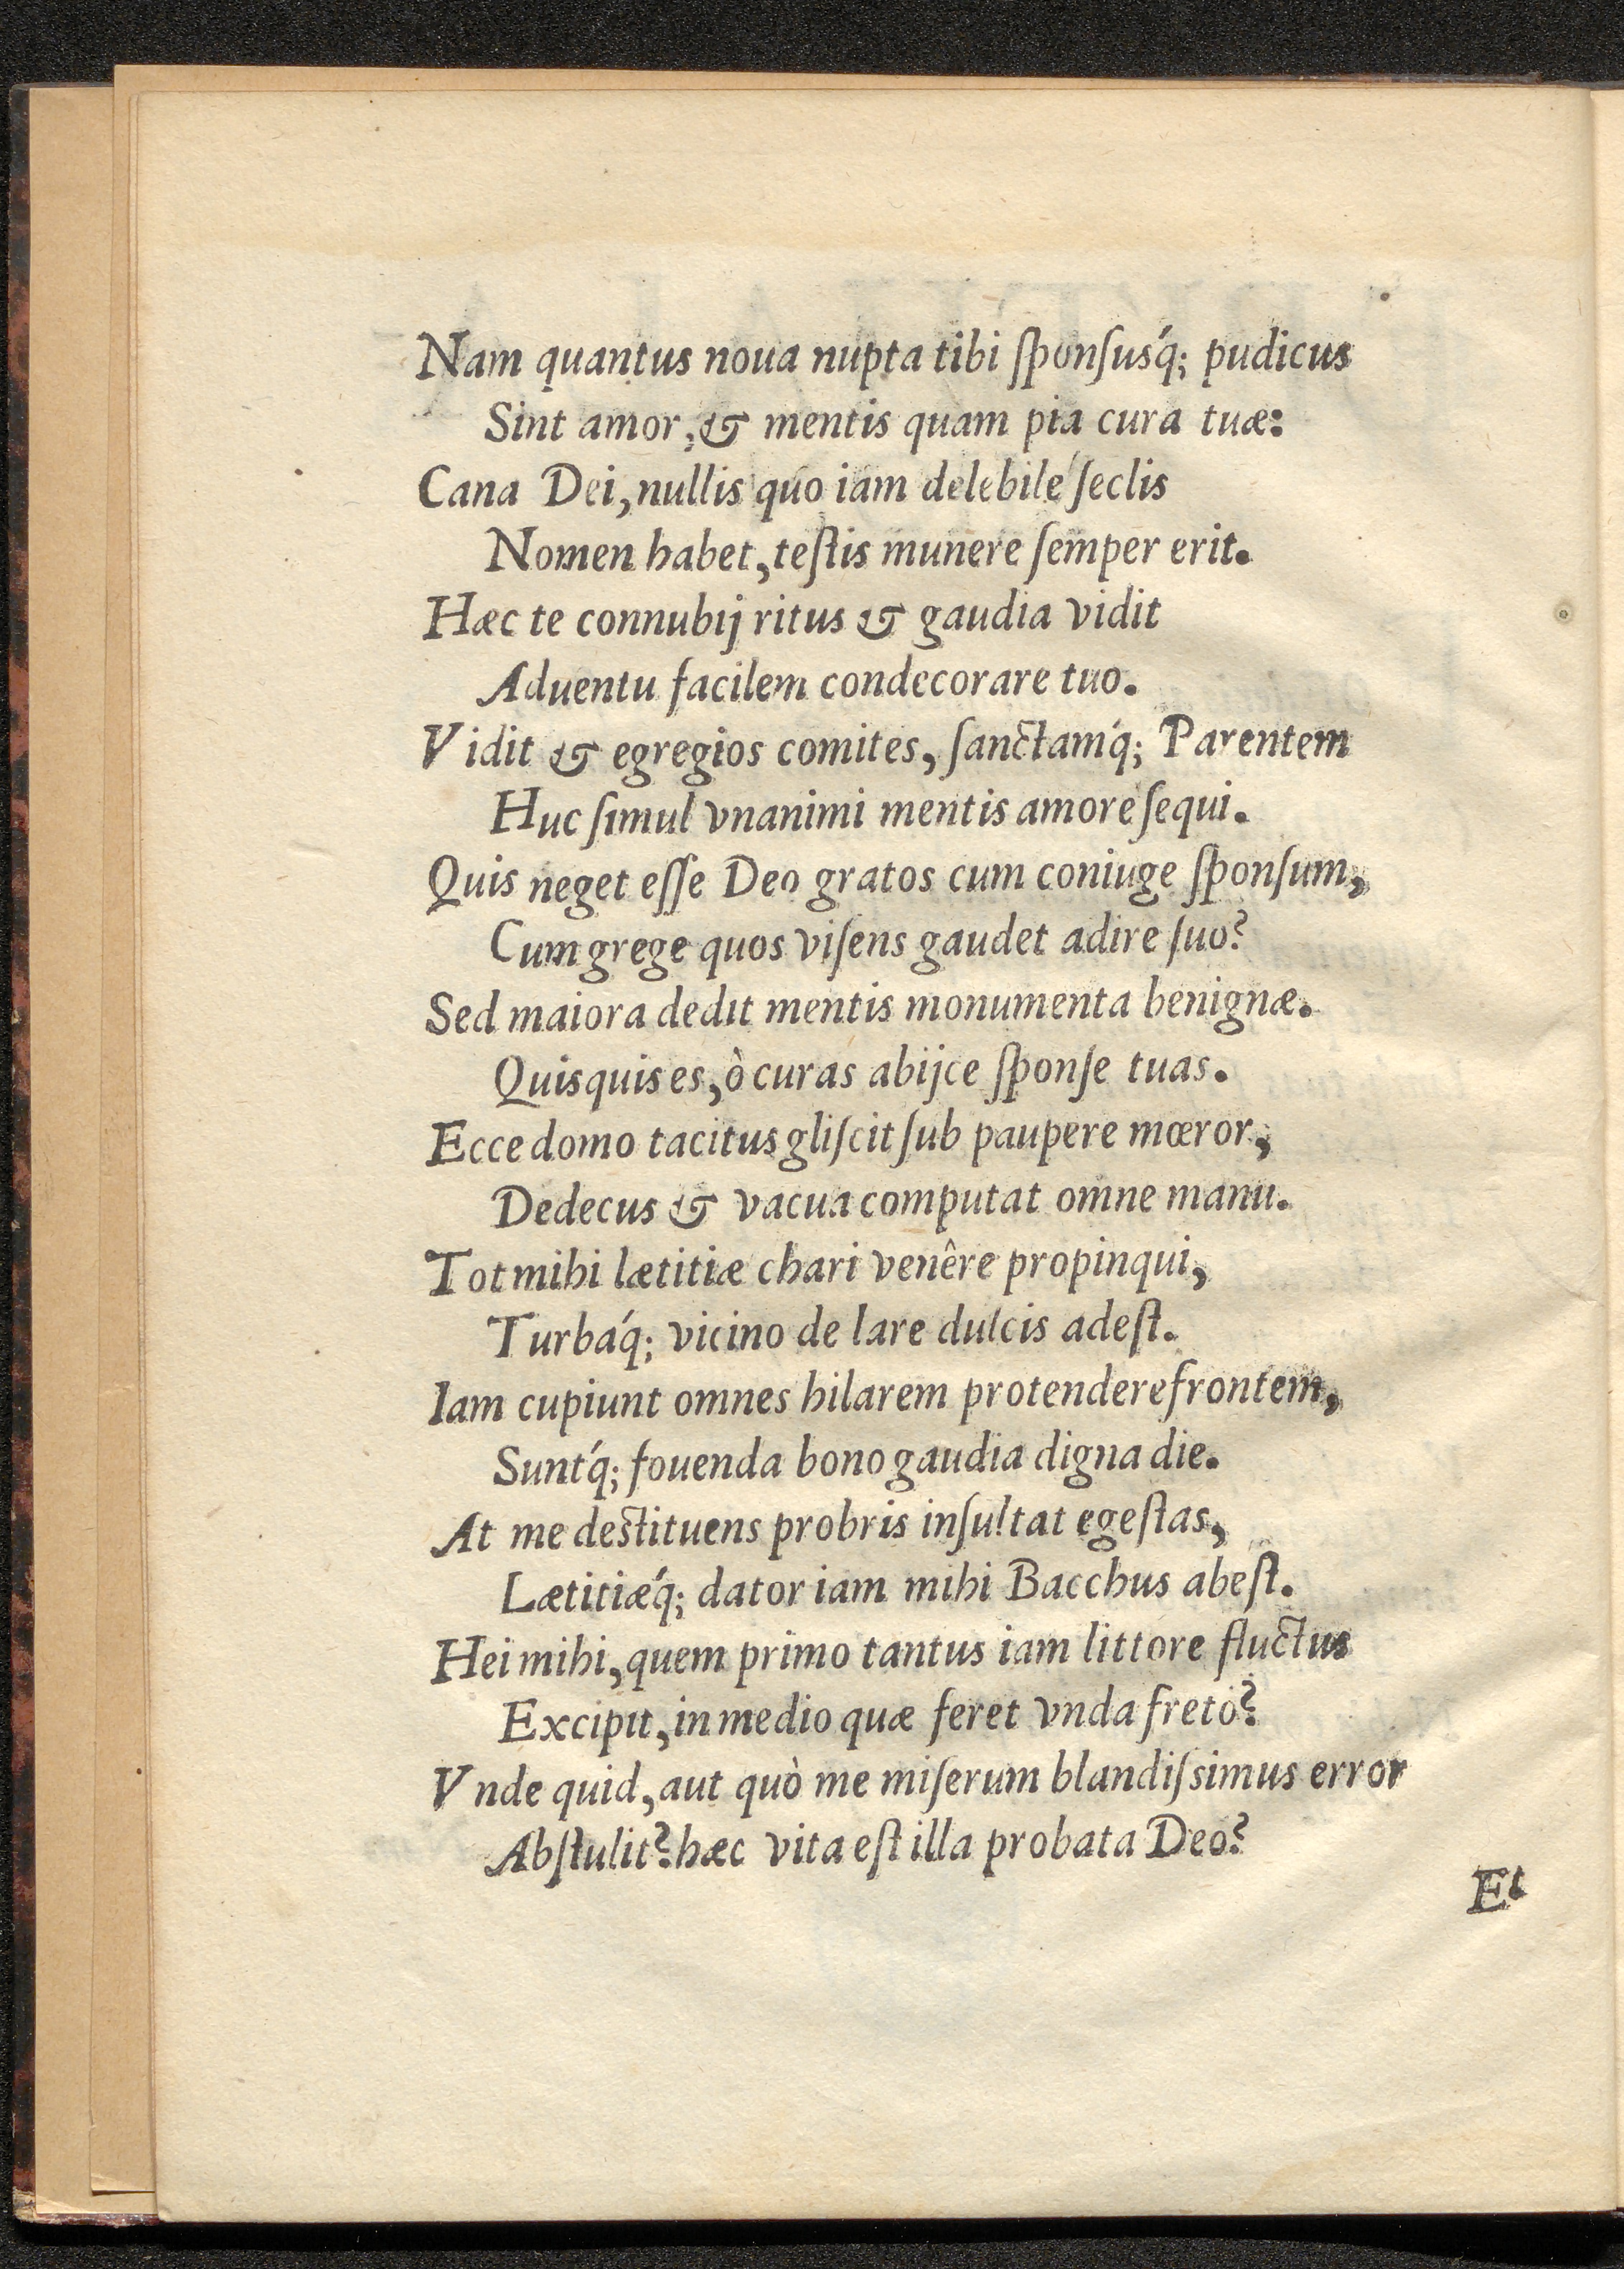 Nam quantus noua nupta tibi ſponſuſq́; pudicus
Sint amor, & mentis quam pia cura tuæ:
Cana Dei, nullis quo iam delebile ſeclis
Nomen habet, teſtis munere ſemper erit.
Hæc te connubij ritus & gaudia vidit
Aduentu facilem condecorare tuo.
Vidit & egregios comites, ſanctamq́; Parentem
Huc ſimul vnanimi mentis amore ſequi.
Quis neget eſſe Deo gratos cum coniuge ſponſum,
Cum grege quos viſens gaudet adire ſuo?
Sed maiora dedit mentis monumenta benignæ.
Quisquis es, ò curas abijce ſponſe tuas.
Ecce domo tacitus gliſcit ſub paupere mœror,
Dedecus & vacua computat omne manu.
Tot mihi lætitiæ chari venêre propinqui,
Turbaq́; vicino de lare dulcis adeſt.
Iam cupiunt omnes hilarem protendere frontem,
Suntq́; fouenda bono gaudia digna die.
At me deſtituens probris inſultat egeſtas,
Lætitiæq́; dator iam mihi Bacchus abeſt.
Hei mihi, quem primo tantus iam littore fluctus
Excipit, in medio quæ feret vnda freto?
Vnde quid, aut quò me miſerum blandiſsimus error
Abſtulit? hæc vita eſt illa probata Deo?
Et